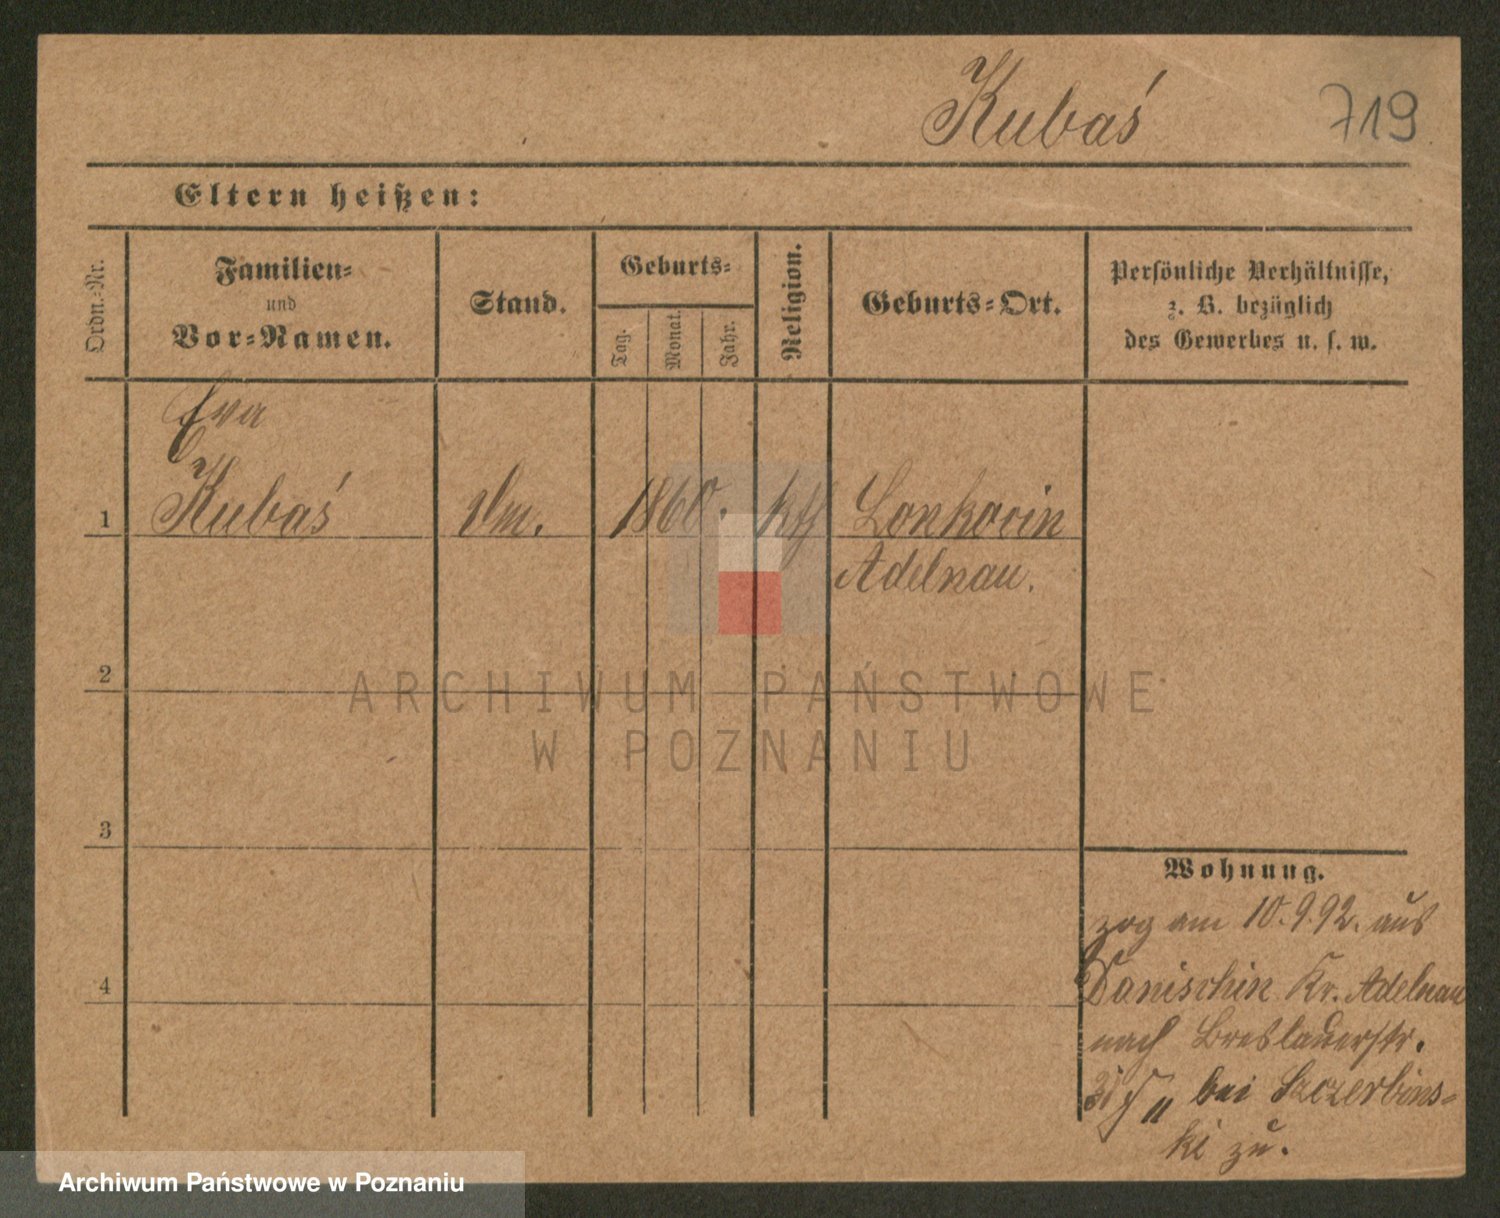 Kubaś 719
Eltern heißen:
Ordn.-Nr.
Familien-
und
Vor-Namen.
Stand.
Geburts-
Tag.
Monat.
Jahr.
Religion.
Geburts-Ort.
Persönliche Verhältnisse,
z. B. bezüglich
des Gewerbes u. s. w.
Eva
1 Kubaś 1860. kth Lonkocin
Adelnau.
2
ARCHIWUM PAŃSTWOWE
W POZNANIU
3
Wohnung.
zog am 10.9.92. aus
4 Danischin Kr. Adelnau
nach Breslauerstr.
bei Szczerbins-
ki zu.
Archiwum Państwowe w Poznaniu